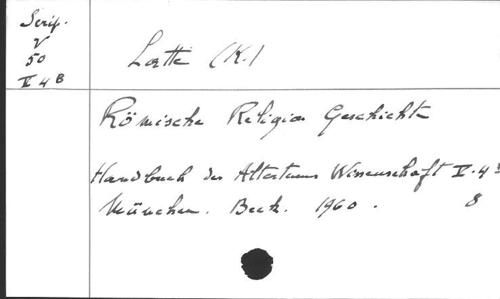 Scrif.
V
50
V 4 B
Latte (K.)
Römische Religion Geschichte
Handbuch der Altertums Wissenschaft V. 4
München. Beck. 1960. 8